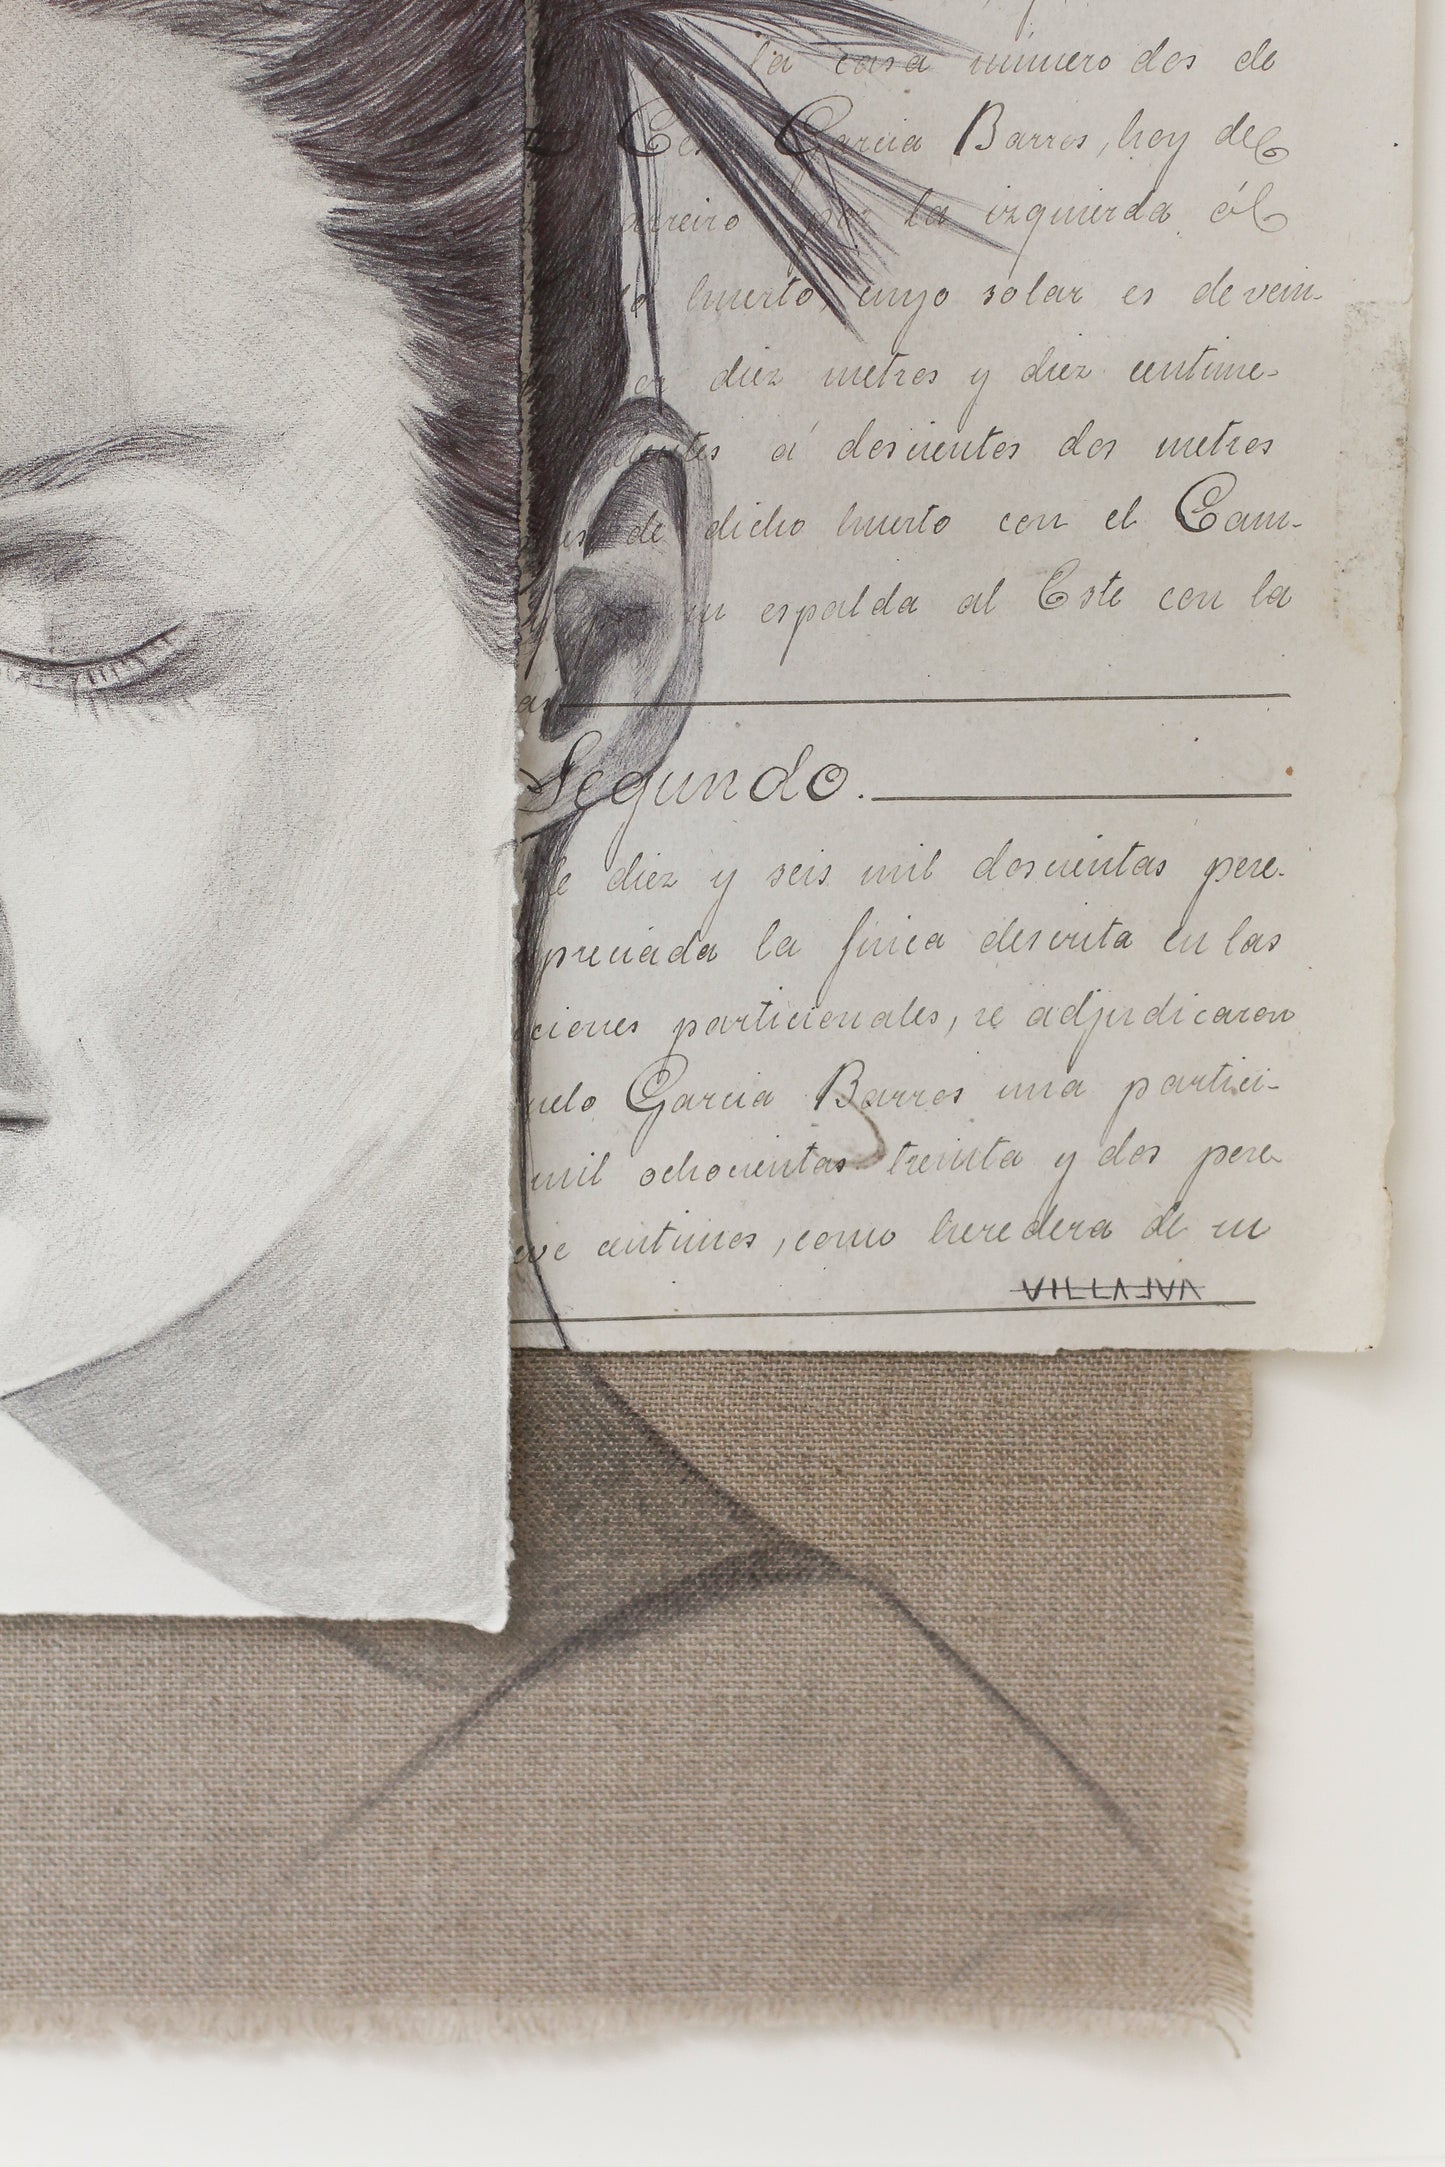 la casa número dos de
García Barros, hoy del
arreiro por la izquierda ól
huerto, cuyo solar es de vein-
diez metros y diez centime-
á doscientos dos metros
de dicho huerto con el Cam-
espalda al Este con la
Segundo.
de diez y seis mil doscientas pese-
preciada la finca descrita en las
ciones particionales, se adjudicaron
uelo García Barros una partici-
mil ochocientas treinta y dos pese
eve centimos, como heredera de su
VILLALVA